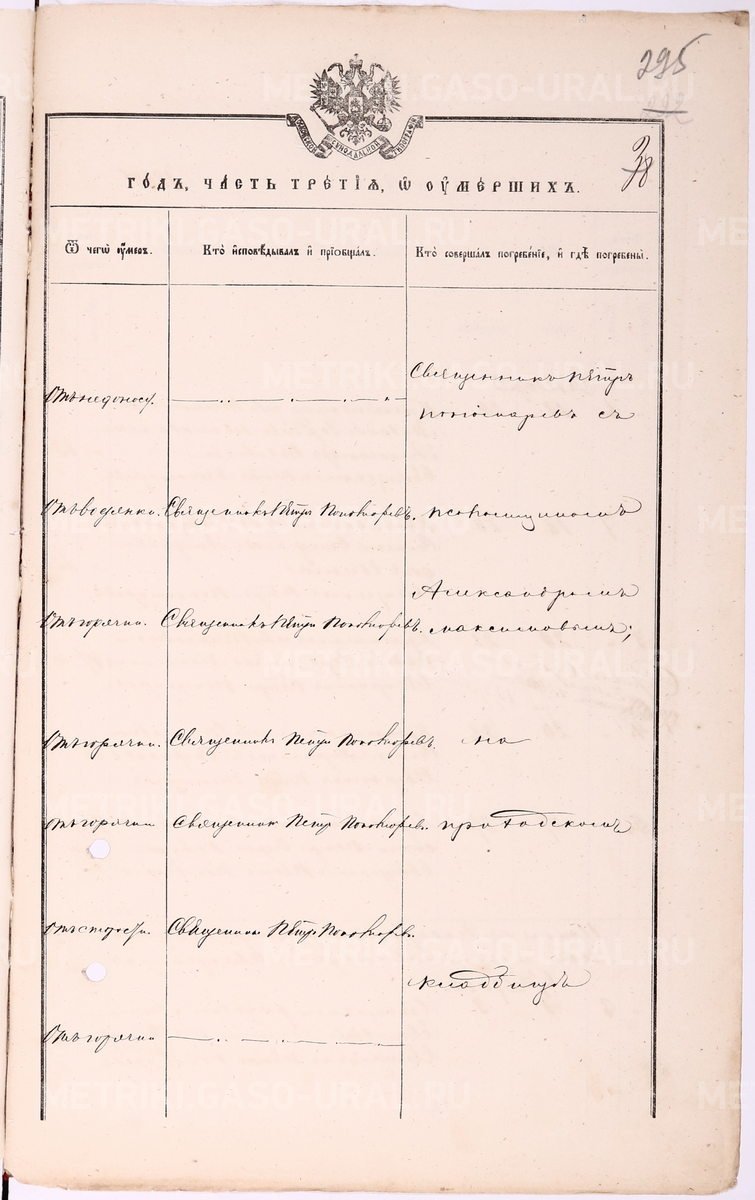 295
38
ГОДЪ, ЧАСТЬ ТРЕТІЯ, Ѿ ОУМЕРШИХЪ.
Ѿ чегѡ оумеръ.
Кто исповѣдывалъ и пріобщалъ.
Кто совершалъ погребеніе, и гдѣ погребены.
Отъ недоносу.
Священникъ Петръ
Пономаревъ съ
Отъ водянки.
Священникъ Петръ Пономаревъ.
псаломщикомъ
Александромъ
Отъ горячки.
Священникъ Петръ Пономаревъ.
Максимовымъ;
Отъ горячки.
Священникъ Петръ Пономаревъ.
на
Отъ горячки
Священник Петр Пономарев.
приходскомъ
Отъ старости.
Священник Петр Пономарев.
кладбищѣ
Отъ горячки
METRIKI.GASO-URAL.RU